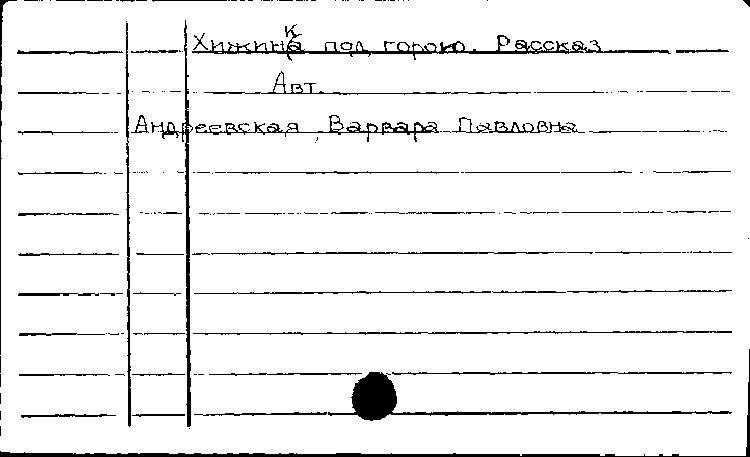 Хижинка под горою. Рассказ
Авт.
Андреевская, Варвара Павловна